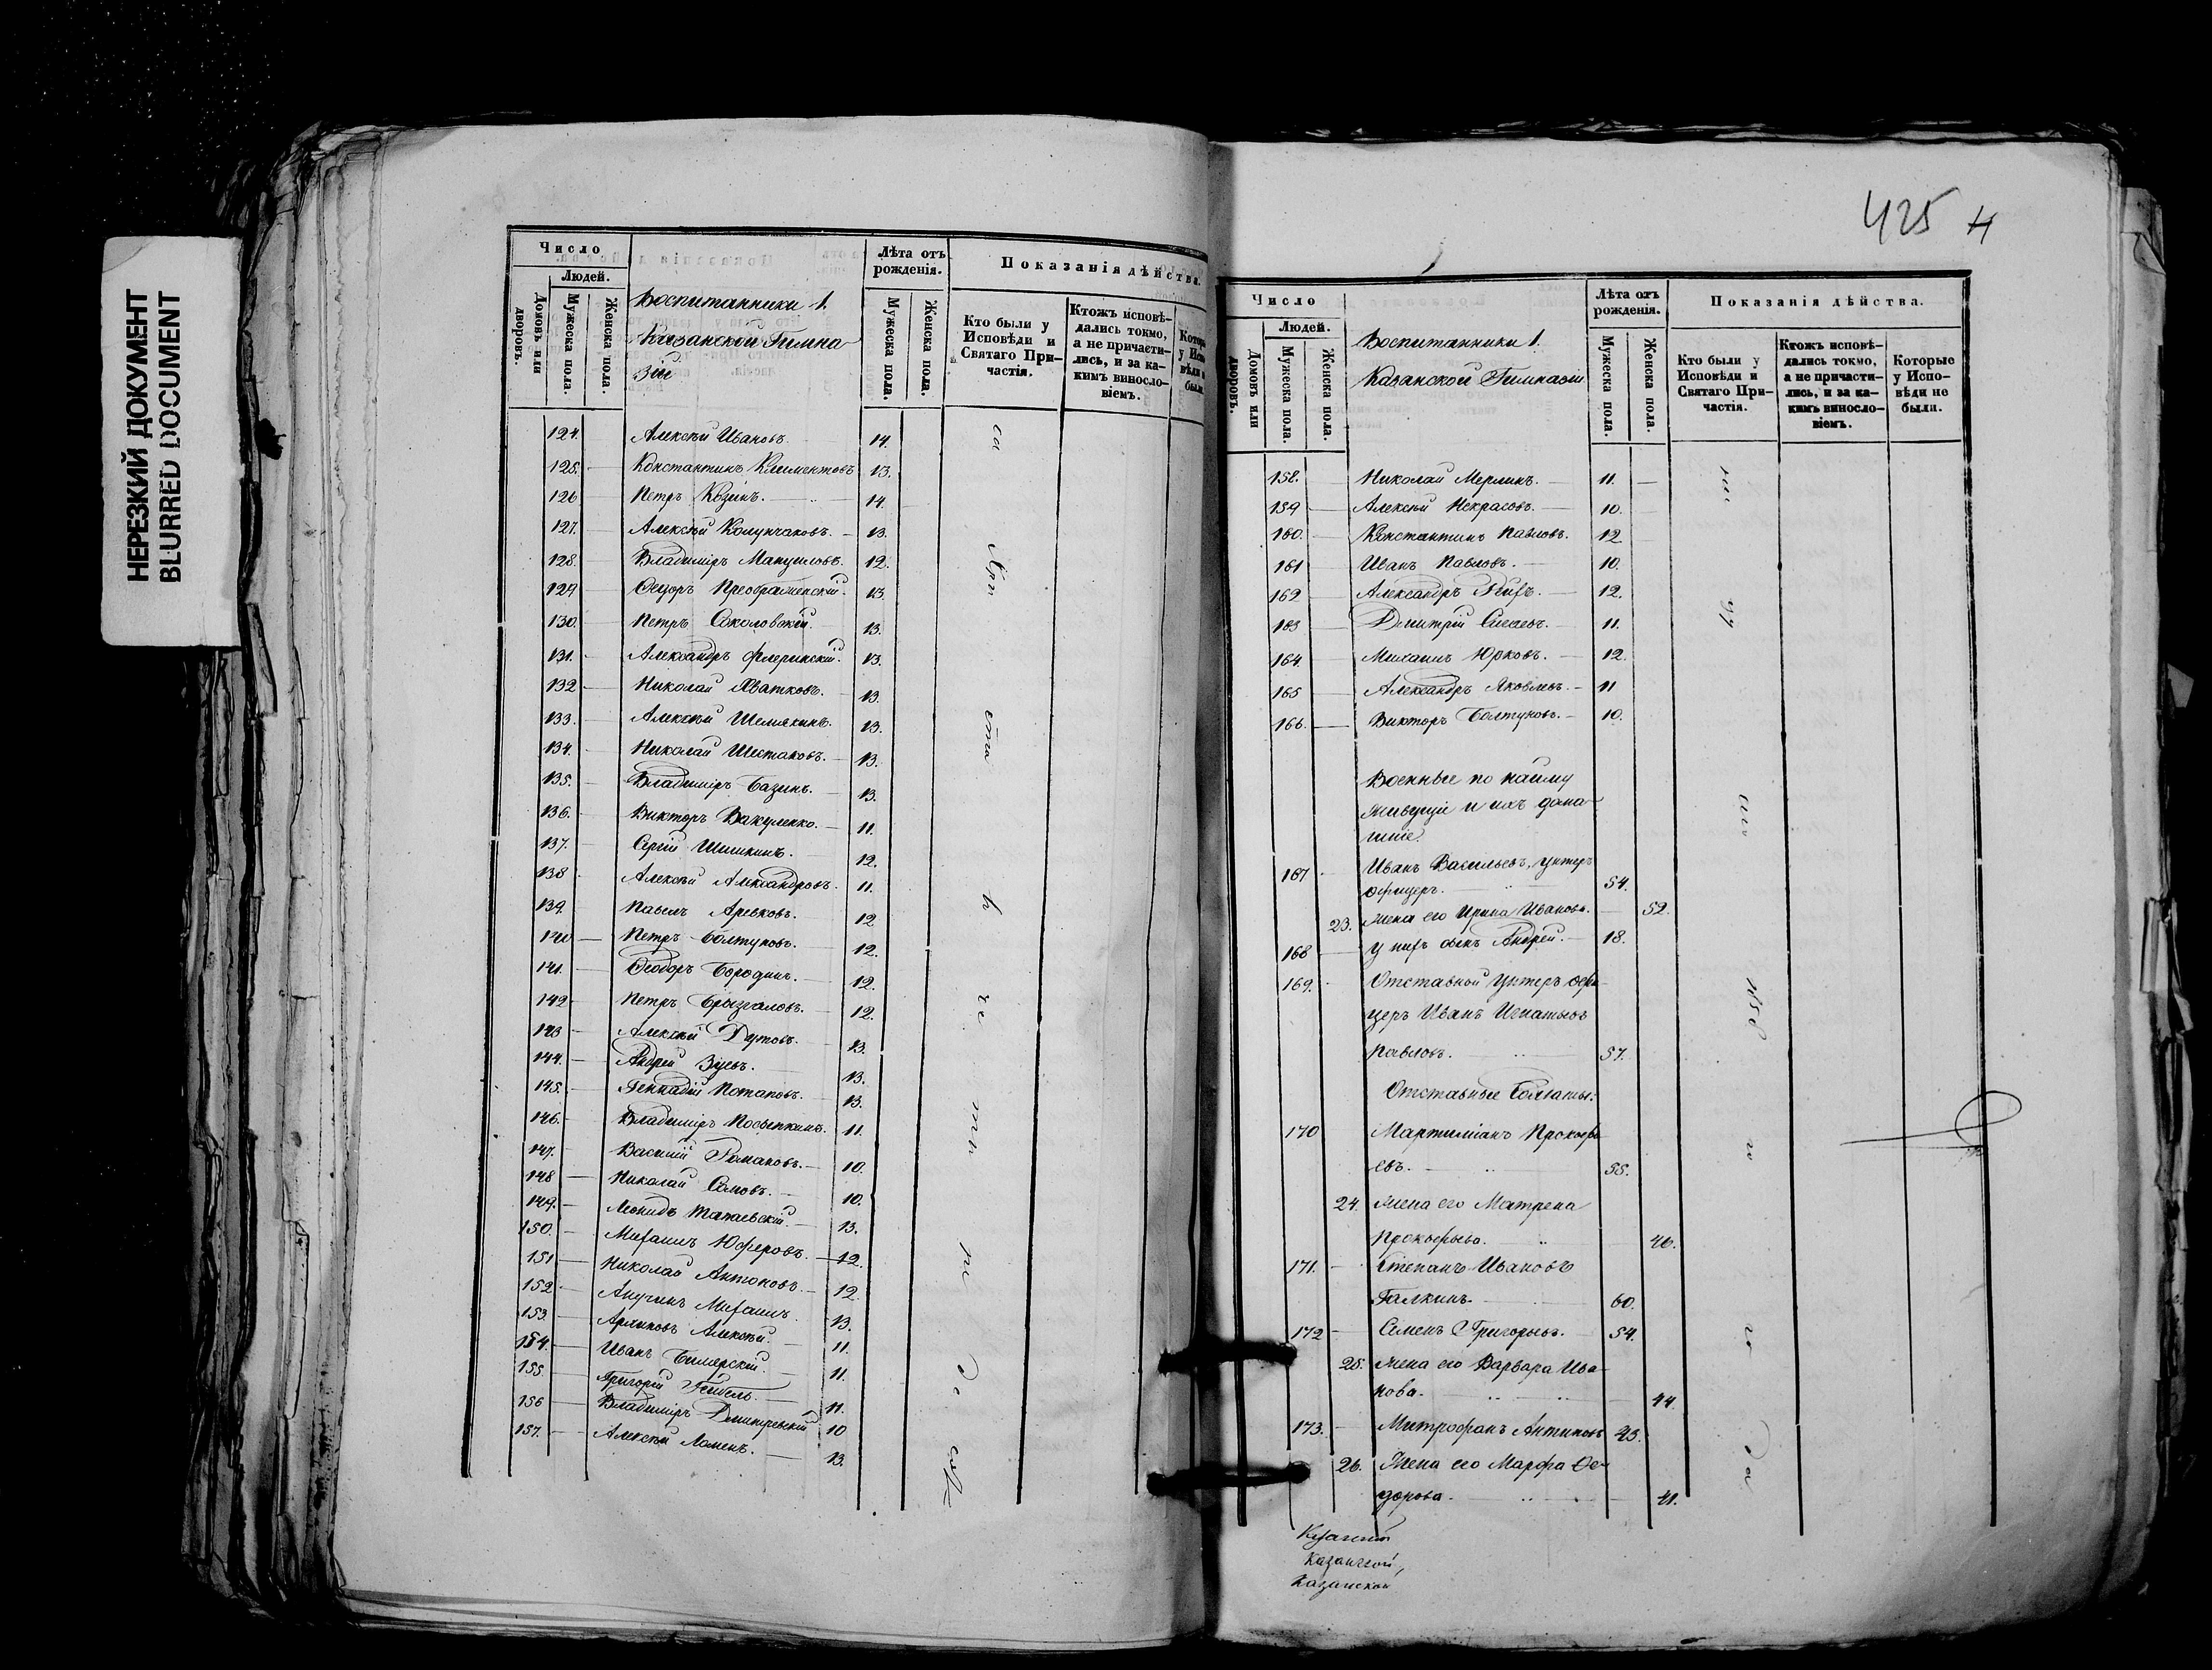 НЕРЕЗКИЙ ДОКУМЕНТ
BLURRED DOCUMENT
Число
Людей.
Домовъ или дворовъ.
Мужеска пола.
Женска пола.
Воспитанники 1.
Казанской Гимна
зіи
Лѣта отъ рожденія.
Мужеска пола.
Женска пола.
Показанія дѣйства.
Кто были у Исповѣди и Святаго Причастія.
Ктожъ исповѣдались токмо, а не причастились, и за какимъ винословіемъ.
124. Алексѣй Ивановъ. 14.
125. Константинъ Климентовъ 13.
126 Петръ Козинъ. 14.
127. Алексѣй Колунчаковъ. 13.
128. Владиміръ Мануиловъ. 12.
129 Ѳедоръ Преображенскій. 13.
130. Петръ Соколовскій. 13.
131. Александръ Флеринскій. 13.
132 Николай Хватковъ. 13.
133. Алексѣй Шелякинъ. 13.
134. Николай Шестаковъ. 13.
135. Владиміръ Базинъ. 13.
136. Викторъ Вакуленко. 11.
137. Сергій Шишкинъ. 12.
138 Алексѣй Александровъ. 11.
139. Павелъ 12
140 Петръ Болтуновъ. 12.
141. Ѳеодоръ Бородинъ. 12.
142 Петръ Брызгаловъ. 12.
143 Алексѣй Дутовъ. 13.
144. Андрей Зуевъ. 13.
145. Геннадій Потаповъ. 13.
146. Владиміръ Посыпкинъ. 11.
147. Василій Романовъ. 10.
148 Николай Сомовъ. 10.
149. Леонидъ 13.
150. Михаилъ Юферовъ. 12.
151 Николай Антоновъ. 12
152 Анучинъ Михаилъ. 13.
153. Алексѣй. 11.
154. Иванъ 11.
155. Григорій Гейбель. 11.
156 Владиміръ Дмитревскій 10
157. Алексѣй 13.
425
Число
Людей.
Домовъ или дворовъ.
Мужеска пола.
Женска пола.
Воспитанники 1.
Казанской Гимназіи
Лѣта отъ рожденія.
Мужеска пола.
Женска пола.
Показанія дѣйства.
Кто были у Исповѣди и Святаго Причастія.
Ктожъ исповѣдались токмо, а не причастились, и за какимъ винословіемъ.
Которые у Исповѣди не были.
158. Николай Мерлинъ. 11.
159 Алексѣй Некрасовъ. 10.
160. Константинъ Павловъ. 12
161 Иванъ Павловъ. 10.
162 Александръ 12.
163 Дмитрій 11.
164. Михаилъ Юрковъ. 12.
165 Александръ Яковлевъ. 11
166. Викторъ Болтуновъ. 10.
Военные по найму
живущіе и ихъ дома-
шніе.
167 Иванъ Васильевъ, унтеръ
офицеръ. 54.
23. жена его Ирина Иванова. 52.
168 у нихъ сынъ Андрей. 18.
169. Отставной унтеръ офи
церъ Иванъ Игнатьевъ
Павловъ. 57.
Отставные Солдаты:
170 Мартиміанъ Прокофь
евъ. 55.
24. жена его Матрена
Прокофьева. 46.
171. Степанъ Ивановъ
Галкинъ. 60.
172 Семенъ Григорьевъ. 54.
25. жена его Варвара Ива-
нова. 44.
173. Митрофанъ Антиповъ 43.
26. Жена его Марфа Ѳе-
дорова. 41.
Казанской,
Казанской